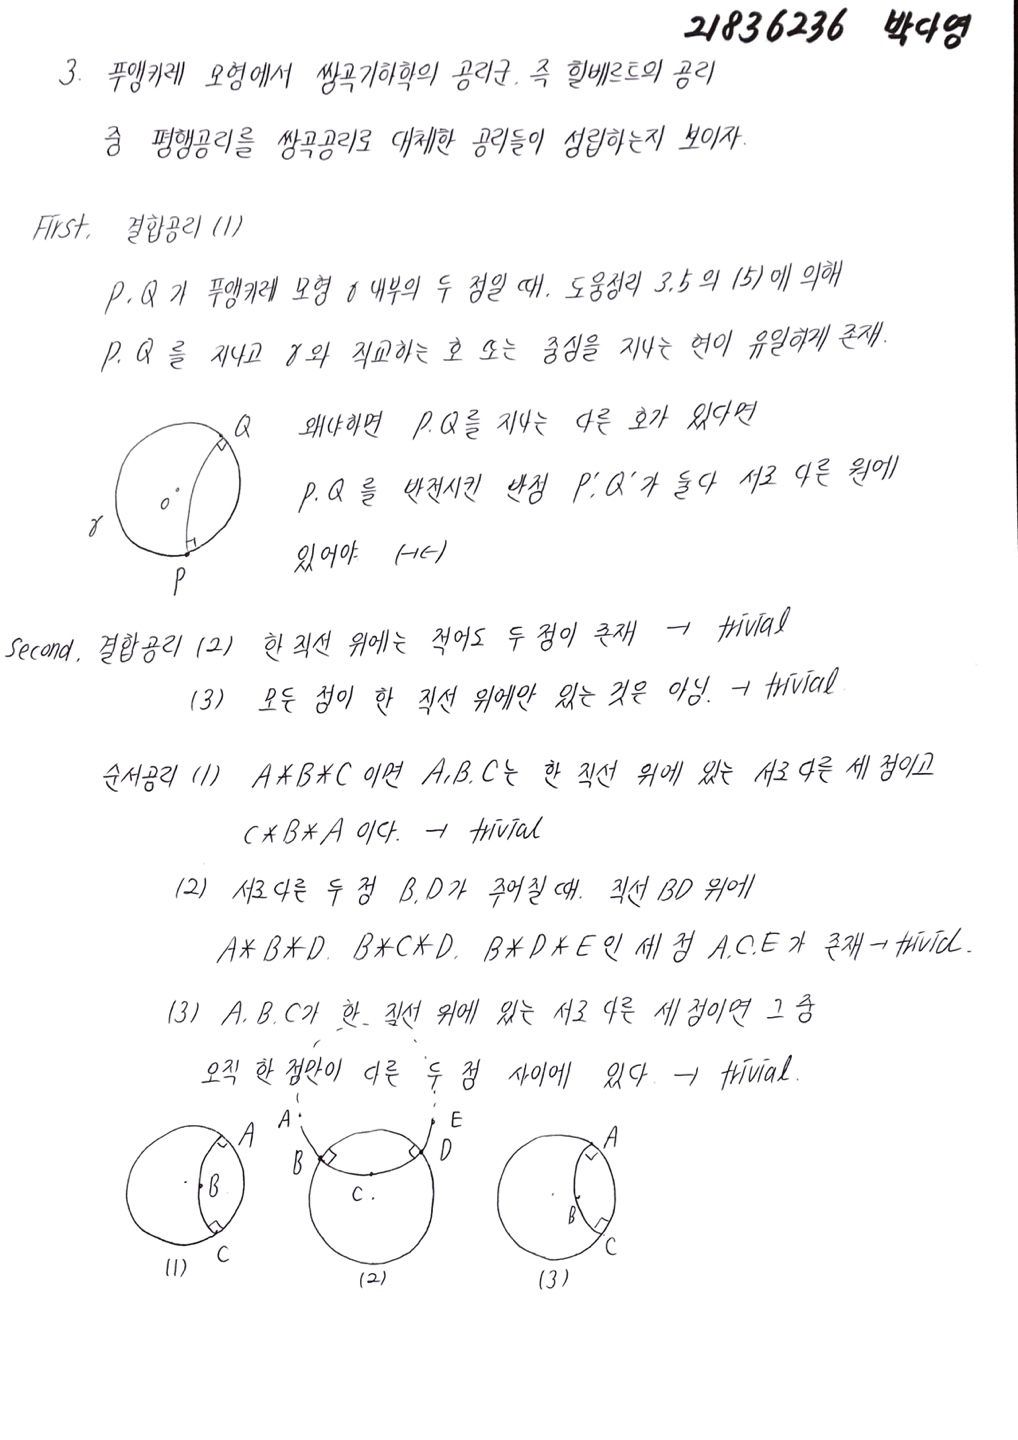 21836236 박다영
3. 푸앵카레 모형에서 쌍곡기하학의 공리군. 즉 힐베르트의 공리
중 평행공리를 쌍곡공리로 대체한 공리들이 성립하는지 보이자.
First. 결합공리 (1)
P.Q가 푸앵카레 모형 γ 내부의 두 점일 때. 도움정리 3.5의 (5)에 의해
P.Q를 지나고 γ와 직교하는 호 또는 중심을 지나는 현이 유일하게 존재.
왜냐하면 P.Q를 지나는 다른 호가 있다면
P.Q를 반전시킨 반점 P'.Q'가 둘다 서로 다른 원에
있어야 (→←)
Q
O
γ
P
Second. 결합공리 (2) 한 직선 위에는 적어도 두 점이 존재 → trivial
(3) 모든 점이 한 직선 위에만 있는 것은 아님. → trivial
순서공리 (1) A*B*C 이면 A.B.C는 한 직선 위에 있는 서로 다른 세 점이고
C*B*A 이다. → trivial
(2) 서로 다른 두 점 B.D가 주어질 때. 직선 BD 위에
A*B*D. B*C*D. B*D*E인 세 점 A.C.E가 존재 → trivial.
(3) A.B.C가 한 직선 위에 있는 서로 다른 세 점이면 그 중
오직 한 점만이 다른 두 점 사이에 있다. → trivial.
A B C
(1)
A B C D E
(2)
A B C
(3)